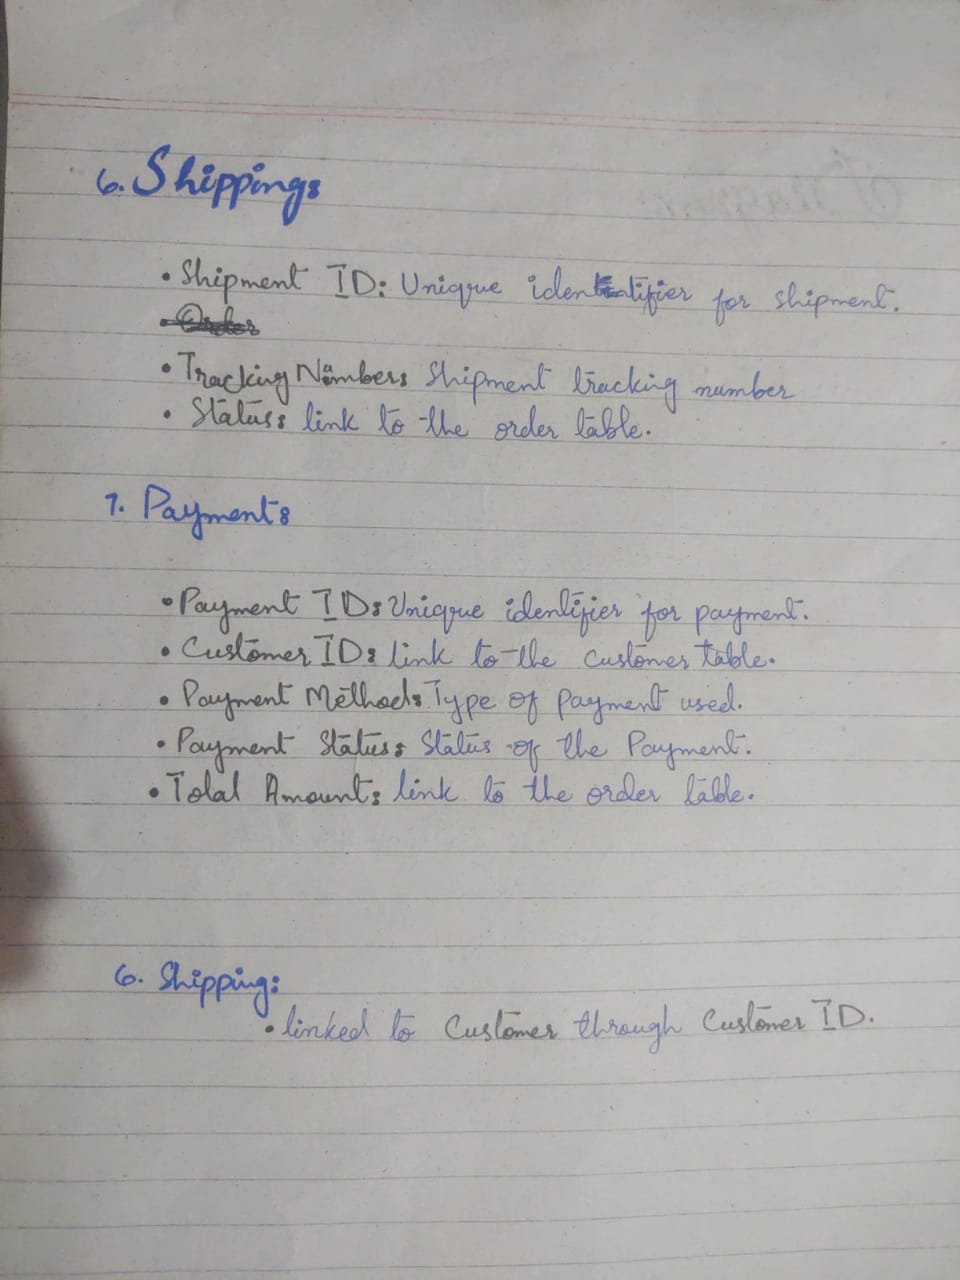 6. Shipping:
• Shipment ID: Unique identifier for shipment.
• Tracking Number: Shipment tracking number
• Status: link to the order table.
7. Payment:
• Payment ID: Unique identifier for payment.
• Customer ID: link to the customer table.
• Payment Method: Type of payment used.
• Payment Status: Status of the Payment.
• Total Amount: link to the order table.
6. Shipping:
• linked to Customer through Customer ID.